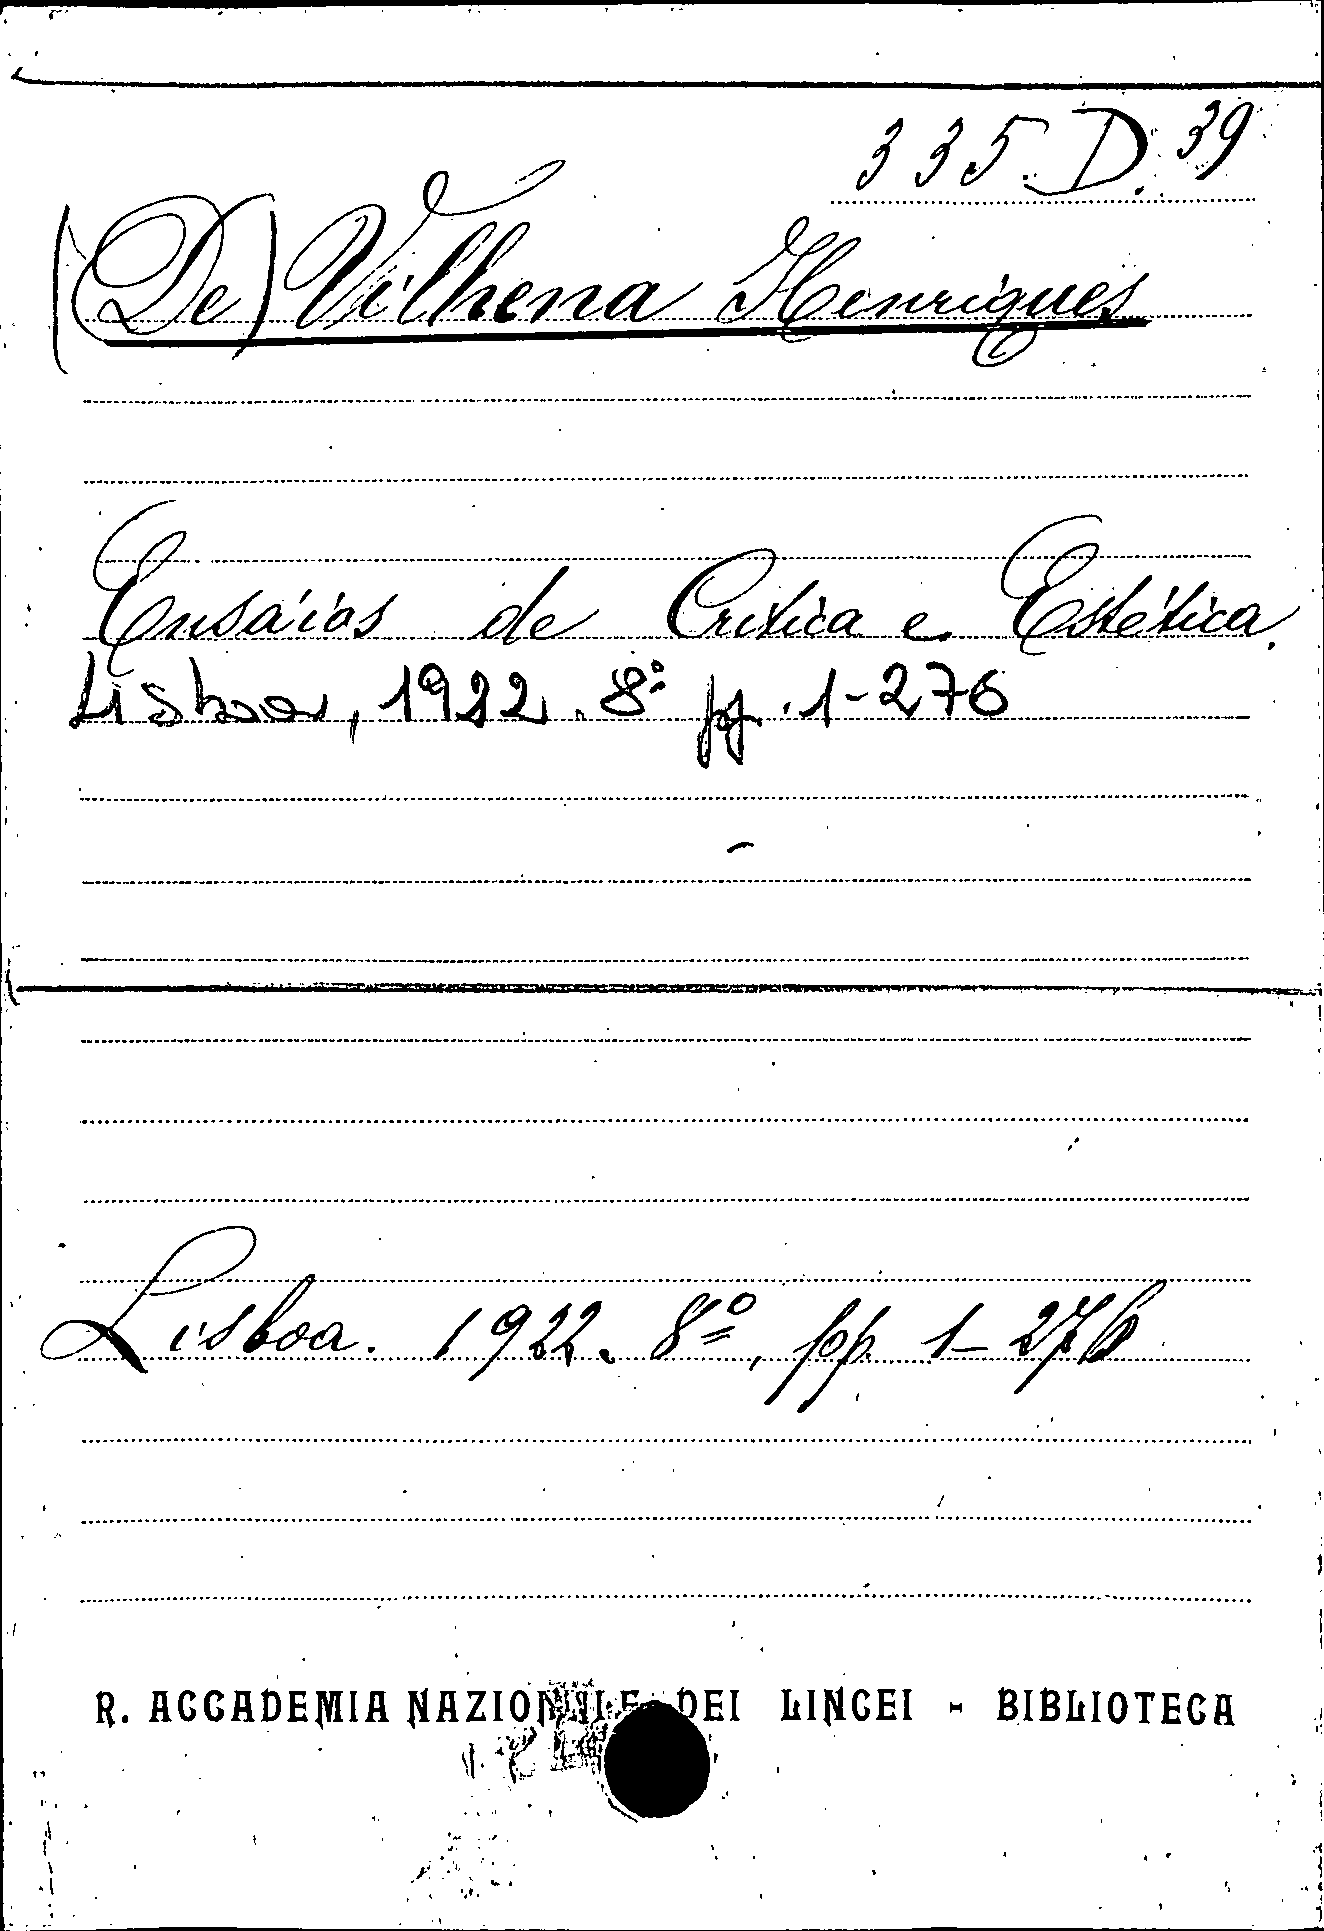 335.D.39
(De) Vilhena Henriques
Ensáios de Critica e Estética.
Lisboa, 1922. 8º pp. 1-276
Lisboa. 1922. 8º, pp. 1-276
R. ACCADEMIA NAZIONALE DEI LINCEI - BIBLIOTECA